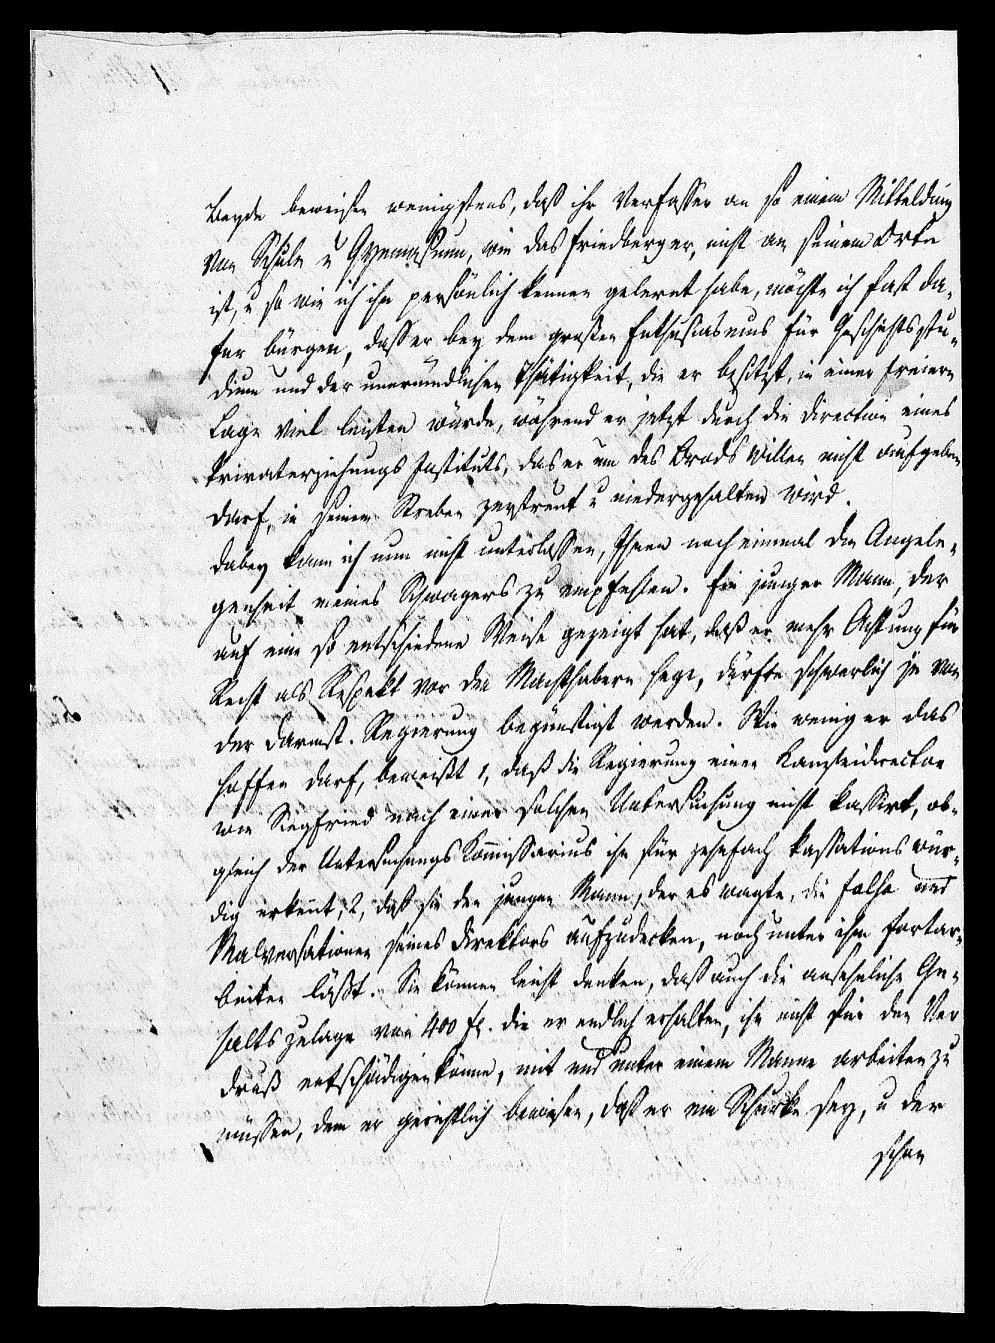 Beyde beweisen wenigstens, daß ihr Verfasser an so einem Mittelding
von Schule u Gymnasium, wie das Friedberger, nicht an seinem Orte
ist, u so wie ich ihn persönlich kennen gelernt habe, möchte ich fast da-
für bürgen, daß er bey dem großen Enthusiasmus für Geschichtsstu-
dium und der unermüdlichen Thätigkeit, die er besitzt, in einer freiern
Lage viel leisten würde, während er jetzt durch die Direction eines
Privaterziehungs Instituts, das er um des Brods willen nicht aufgeben
darf, in seinem Streben zerstreut u niedergehalten wird.
Dabey kann ich nun nicht unterlassen, Ihnen noch einmal die Angele-
genheit meines Schwagers zu empfehlen. Ein junger Mann, der
auf eine so entschiedene Weise gezeigt hat, daß er mehr Achtung für
Recht als Respekt vor den Machthabern hege, dürfte schwerlich je von
der Darmst. Regierung begünstigt werden. Wie wenig er das
hoffen darf, beweißt 1, daß die Regierung einen Kanzleidirector
wie Siegfried nach einer solchen Untersuchung nicht kassirt, ob-
gleich der Untersuchungs Kommissarius ihn für zehnfach kassationswür-
dig erkennt; 2, daß sie den jungen Mann, der es wagte, die falsa und
Malversationen seines Direktors aufzudecken, noch unter ihm fortar-
beiten läßt. Sie können leicht denken, daß auch die ansehnliche Ge-
haltszulage von 400 fl. die er endlich erhalten, ihn nicht für den Ver
druß entschädigen könne, mit und unter einem Manne arbeiten zu
müssen, dem er gerichtlich bewiesen, daß er ein Schurke sey, u der
schon